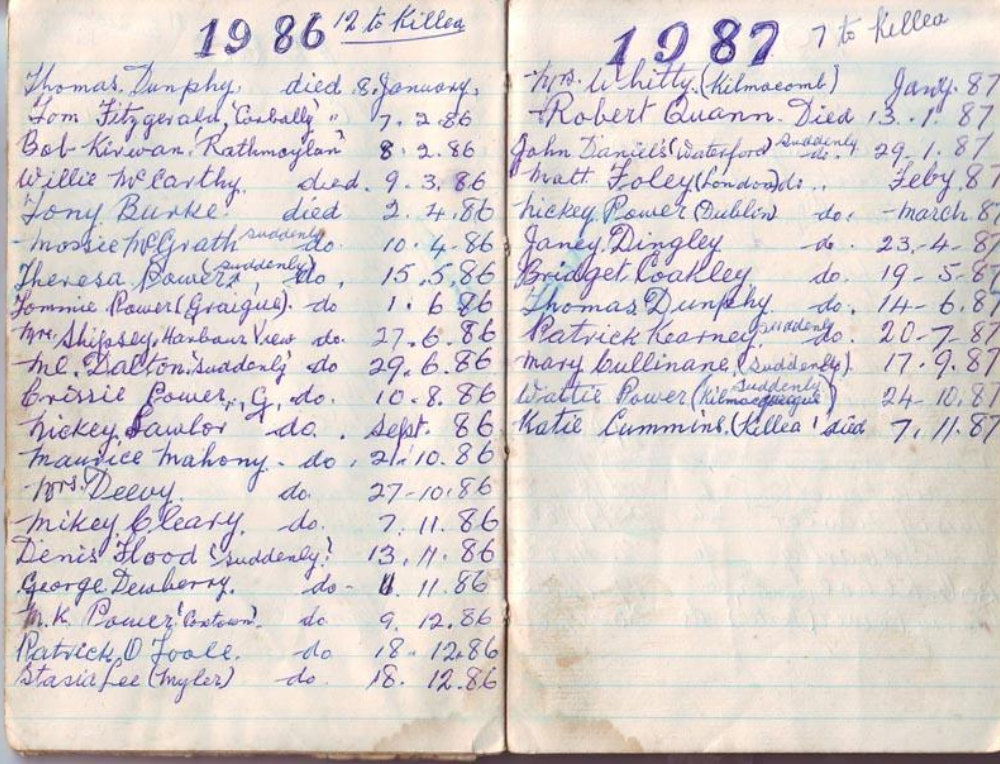 1986 12 to Killea
Thomas Dunphy. died 8. January.
Tom Fitzgerald, 'Corbally' " 7. 2. 86
Bob Kirwan. 'Rathmoylan' 8. 2. 86
Willie McCarthy. died. 9. 3. 86
Tony Burke. died 2. 4. 86
Mossie McGrath suddenly do. 10. 4. 86
Theresa Power, (suddenly) do. 15. 5. 86
Tommie Power (Graigue). do 1. 6 86
Mrs. Shipsey, Harbour View do. 27. 6. 86
Ml. Dalton. 'suddenly' do 29. 6. 86
Crissie Power, G, do. 10. 8. 86
Nickey Lawlor do. Sept. 86
Maurice Mahony. do. 21. 10. 86
Mrs. Deevy. do. 27-10. 86
Mikey Cleary. do. 7. 11. 86
Denis Flood (suddenly) 13. 11. 86
George Dewberry. do- 11. 86
M.K. Power do 9. 12. 86
Patrick O Toole. do 18. 12. 86
Stasia Lee (Myler) do. 18. 12. 86
1987 7 to Killea
Mrs. Whitty. (Kilmacomb) Jany. 87
Robert Quann. Died 13. 1. 87
John Daniels (Waterford) suddenly do. 29. 1. 87
Matt Foley (London) do .. Feby. 87
Nickey Power (Dublin) do. - March. 87
Janey Dingley do. 23-4-87
Bridget Coakley do. 19-5-87
Thomas Dunphy. do. 14-6. 87
Patrick Kearney. suddenly do. 20-7-87
Mary Cullinane, (suddenly). 17. 9. 87
Wattie Power suddenly 24-10. 87
Katie Cummins. (Killea) died 7. 11. 87